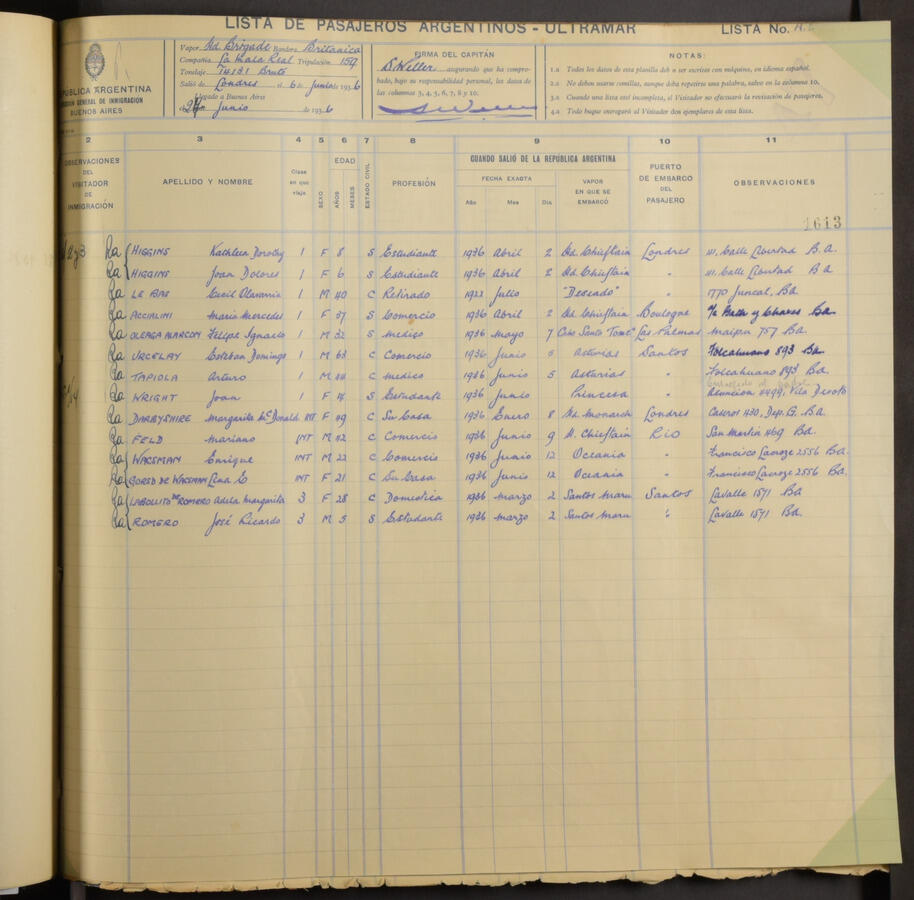 LISTA DE PASAJEROS ARGENTINOS - ULTRAMAR
LISTA No.
REPUBLICA ARGENTINA
GENERAL DE INMIGRACION
BUENOS AIRES
Vapor Hd Brigade Bandera Britanica
Compañía La Mala Real Tripulación 159
Tonelaje Bruto
Salió de Londres el 6 de Junio de 1936
Llegado a Buenos Aires
el 24 Junio de 1936
FIRMA DEL CAPITÁN
asegurando que ha compro-
bado, bajo su responsabilidad personal, los datos de
las columnas 3, 4, 5, 6, 7, 8 y 10.
NOTAS:
1.a Todos los datos de esta planilla deben ser escritos con máquina, en idioma español.
2.a No deben usarse comillas, aunque deba repetirse una palabra, salvo en la columna 10.
3.a Cuando una lista esté incompleta, el Visitador no efectuará la revisación de pasajeros.
4.a Todo buque entregará al Visitador dos ejemplares de esta lista.
2 3 4 5 6 7 8 9 10 11
OBSERVACIONES DEL VISITADOR DE INMIGRACIÓN
APELLIDO Y NOMBRE
Clase en que viaja
SEXO
EDAD
AÑOS
MESES
ESTADO CIVIL
PROFESIÓN
CUANDO SALIÓ DE LA REPUBLICA ARGENTINA
FECHA EXACTA
Año Mes Dia
VAPOR EN QUE SE EMBARCÓ
PUERTO DE EMBARCO DEL PASAJERO
OBSERVACIONES
1613
HIGGINS Kathleen Dorothy 1 F 8 S Estudiante 1936 Abril 2 Hd. Chieftain Londres 111. Calle Libertad B.A.
HIGGINS Joan Dolores 1 F 6 S Estudiante 1936 Abril 2 Hd. Chieftain " 111. Calle Libertad B A
LE BAS Cecil Olavarria 1 M 40 C Retirado 1922 Julio "Deseado" " 1770 Juncal, Ba
ACCIALINI Maria Mercedes 1 F 37 S Comercio 1936 Abril 2 Hd. Chieftain Boulogne Ba
OLEAGA ALARCON Felipe Ignacio 1 M 32 S Medico 1936 Mayo 7 Cabo Santo Tomé Las Palmas Maipu 757 Ba.
URCELAY Esteban Domingo 1 M 63 C Comercio 1936 Junio 5 Asturias Santos Talcahuano 893 Ba.
TAPIOLA Arturo 1 M 44 C Medico 1936 Junio 5 Asturias " Talcahuano 893 Ba.
WRIGHT Joan 1 F 14 S Estudiante 1936 Junio Princesa " Asuncion 4499, Vila Devoto
DARBYSHIRE Margarita McDonald INT F 49 C Su Casa 1936 Enero 8 Hd. Monarch Londres Caseros 1430, Dep. G. Ba
FELD Mariano INT M 42 C Comercio 1936 Junio 9 H. Chieftain Rio San Martin 469 Ba.
WACSMAN Enrique INT M 22 C Comercio 1936 Junio 12 Oceania " Francisco Lacroze 2556 Ba.
GORED DE WACSMAN Lina E INT F 21 C Su Casa 1936 Junio 12 Oceania " Francisco Lacroze 2556 Ba.
LABOLLITO DE ROMERO Adela Margarita 3 F 28 C Domestica 1936 Marzo 2 Santos Maru Santos Lavalle 1571 Ba
ROMERO José Ricardo 3 M 5 S Estudiante 1936 Marzo 2 Santos Maru " Lavalle 1571 Ba.